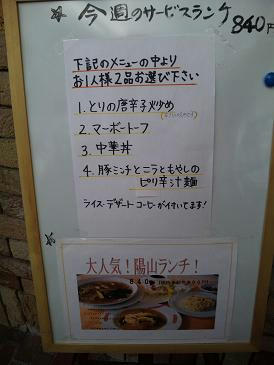 今週のサービスランチ
840円
下記のメニューの中より
お1人様2品お選び下さい
1. とりの唐辛子炒め
2. マーボートーフ
3. 中華丼
4. 豚ミンチとニラともやしの
ピリ辛汁麺
ライス・デザートコーヒーが付いてます!
大人気!陽山ランチ!
840